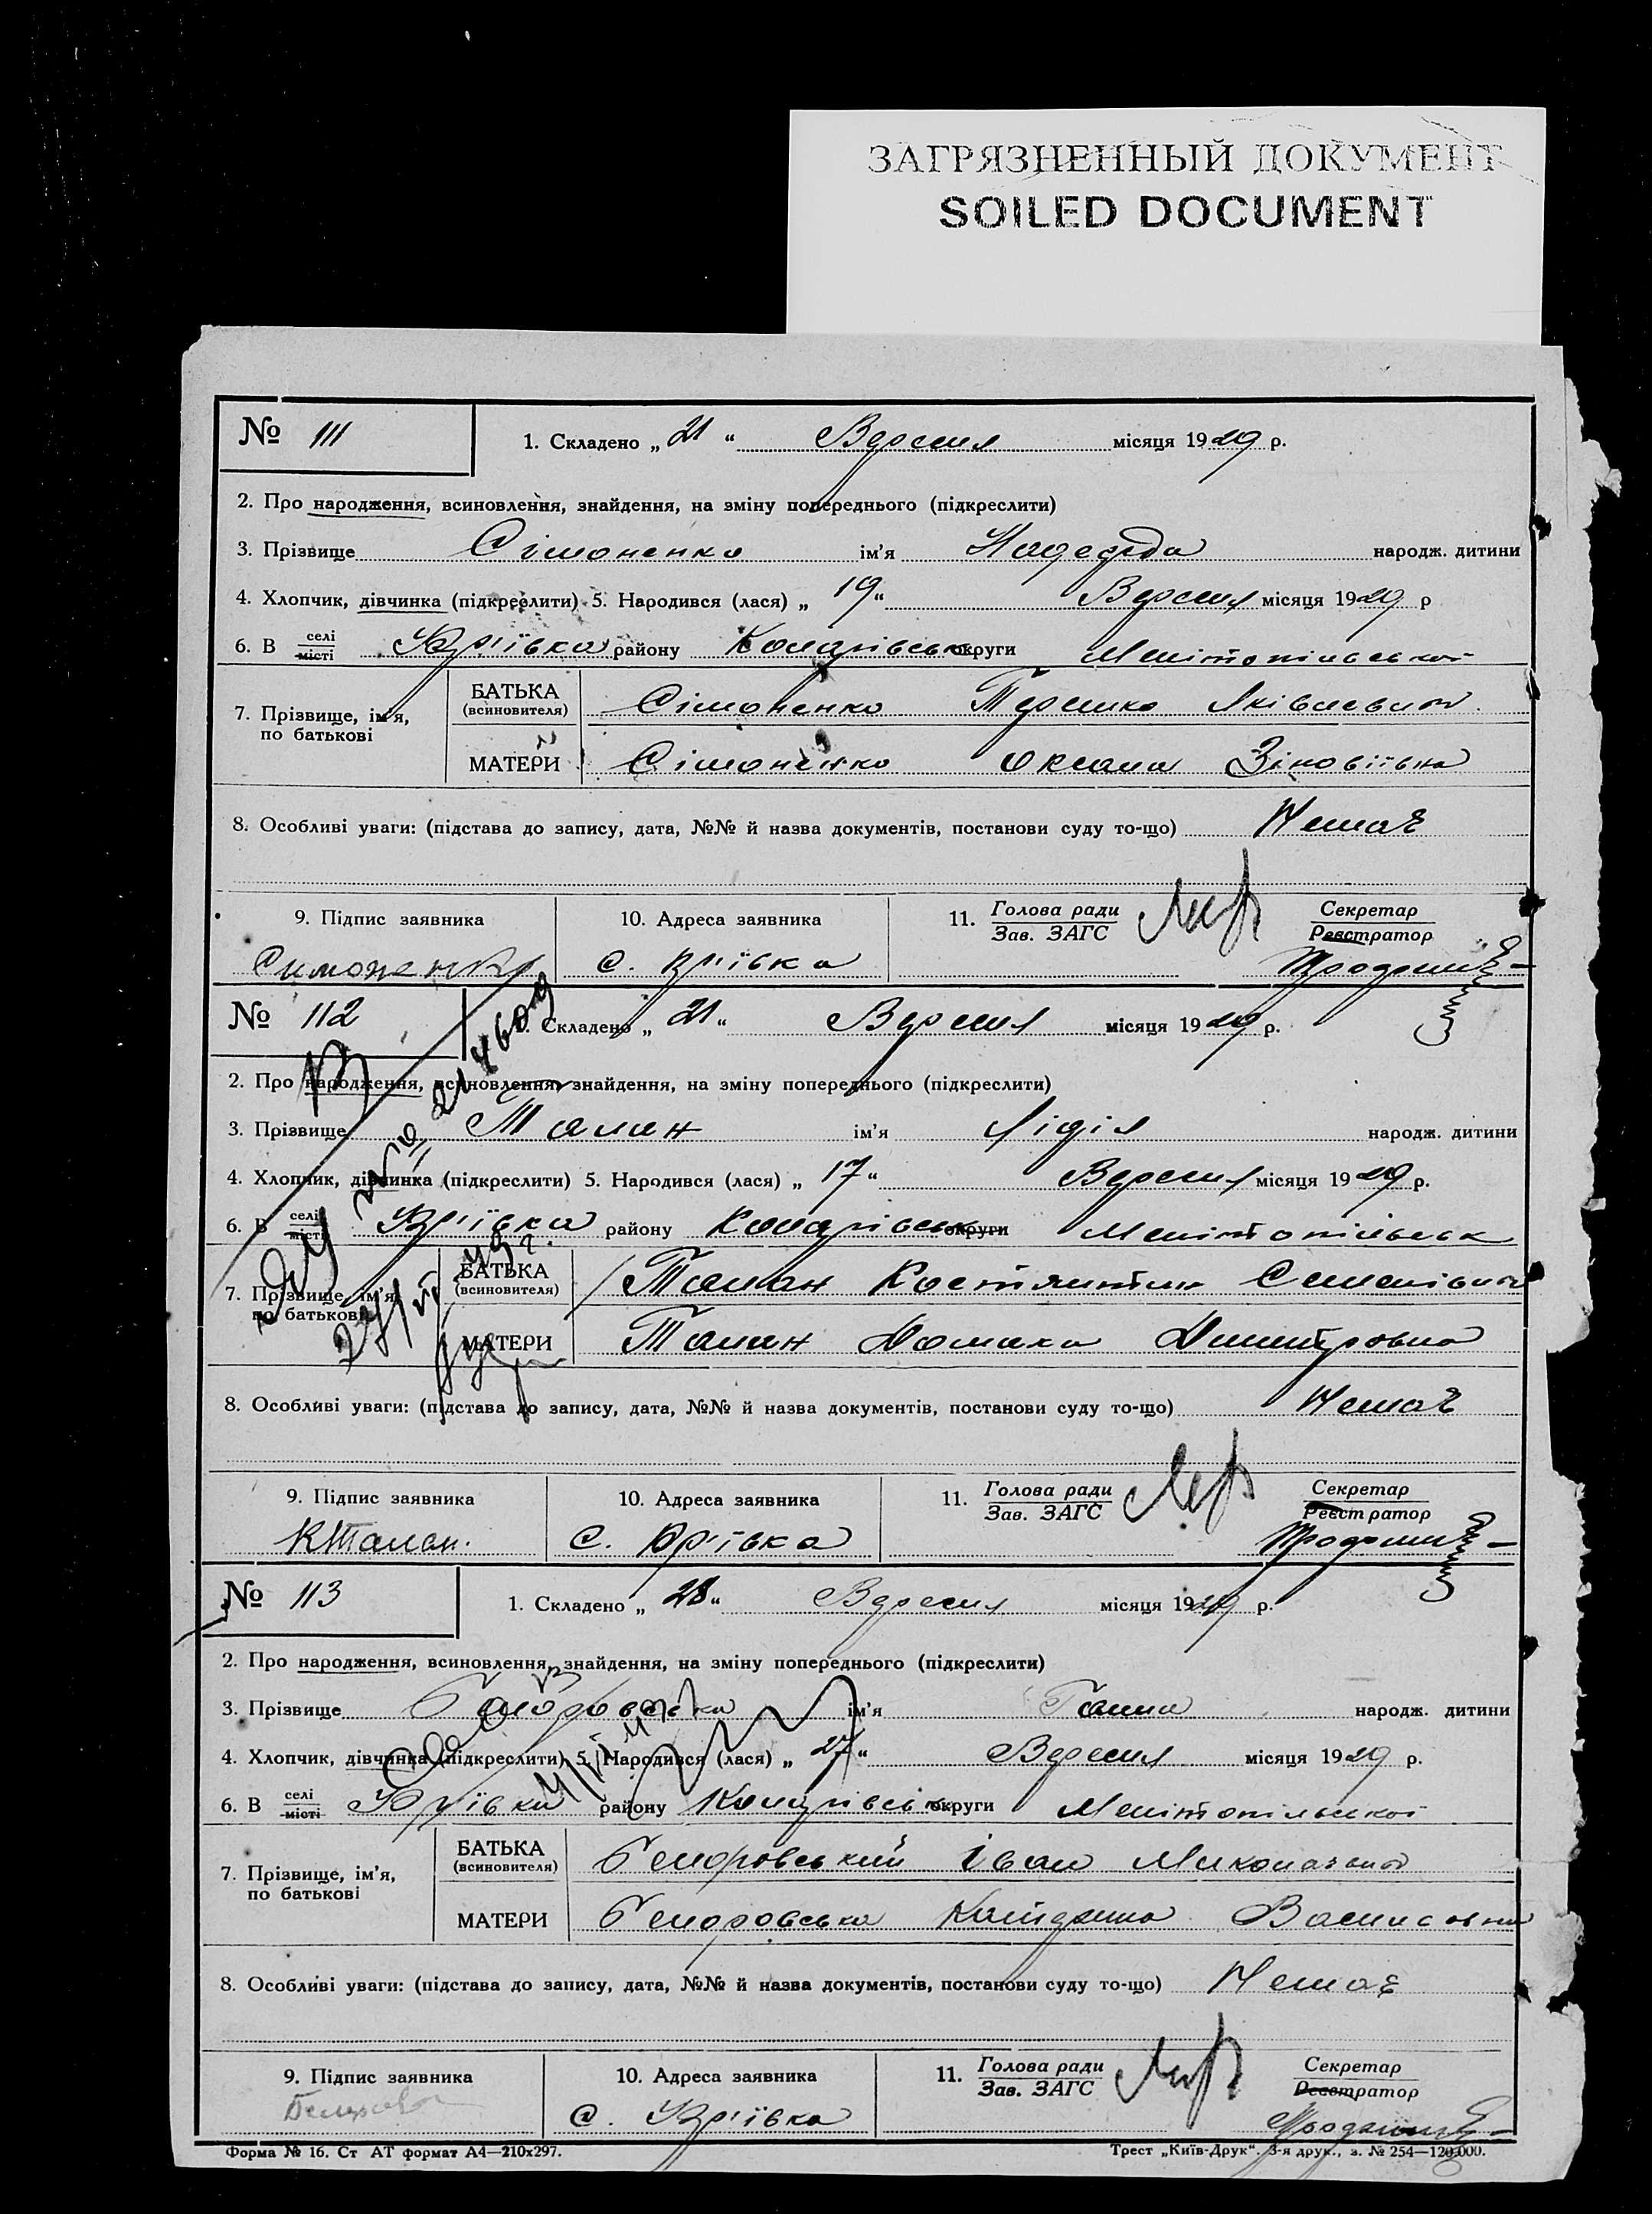 ЗАГРЯЗНЕННЫЙ ДОКУМЕНТ
SOILED DOCUMENT
№ 111
1. Складено „ 21 “ Вересня місяця 1929 р.
2. Про народження, всиновлення, знайдення, на зміну попереднього (підкреслити)
3. Прізвище Сімоненко ім’я Надежда народж. дитини
4. Хлопчик, дівчинка (підкреслити) 5. Народився (лася) „ 19 “ Вересня місяця 1929 р
6. В селі місті Юр'ївка району Коларівськ округи Мелітопільської
7. Прізвище, ім’я, по батькові
БАТЬКА (всиновителя) Сімоненко Яківлевич
МАТЕРИ Сімоненко Оксана Зіновіївна
8. Особливі уваги: (підстава до запису, дата, №№ й назва документів, постанови суду то-що) Немає
9. Підпис заявника
10. Адреса заявника
11. Голова ради Зав. ЗАГС
Секретар Реєстратор
Симоненко
С. Юр'ївка
№ 112
1. Складено „ 21 “ Вересня місяця 1929 р.
2. Про народження, всиновлення, знайдення, на зміну попереднього (підкреслити)
3. Прізвище Талан ім’я Лідія народж. дитини
4. Хлопчик, дівчинка (підкреслити) 5. Народився (лася) „ 17 “ Вересня місяця 1929 р.
6. В селі місті Юр'ївка району Коларівськ округи Мелітопільськ
7. Прізвище, ім’я, по батькові
БАТЬКА (всиновителя) Талан Костянтин Семенівич
МАТЕРИ Талан Домаха Димитровна
8. Особливі уваги: (підстава до запису, дата, №№ й назва документів, постанови суду то-що) Немає
9. Підпис заявника
10. Адреса заявника
11. Голова ради Зав. ЗАГС
Секретар Реєстратор
КТалан.
С. Юр'ївка
№ 113
1. Складено „ 28 “ Вересня місяця 1929 р.
2. Про народження, всиновлення, знайдення, на зміну попереднього (підкреслити)
3. Прізвище ім’я Ганна народж. дитини
4. Хлопчик, дівчинка (підкреслити) 5. Народився (лася) „ 27 “ Вересня місяця 1929 р.
6. В селі місті Юр'ївка району Коларівськ округи Мелітопільської
7. Прізвище, ім’я, по батькові
БАТЬКА (всиновителя) Іван Миколаєвич
МАТЕРИ Катерина Василовна
8. Особливі уваги: (підстава до запису, дата, №№ й назва документів, постанови суду то-що) Немає
9. Підпис заявника
10. Адреса заявника
11. Голова ради Зав. ЗАГС
Секретар Реєстратор
С. Юр'ївка
Форма № 16. Ст АТ формат А4—210х297.
Трест „Київ-Друк“. 3-я друк., з. № 254—120.000.